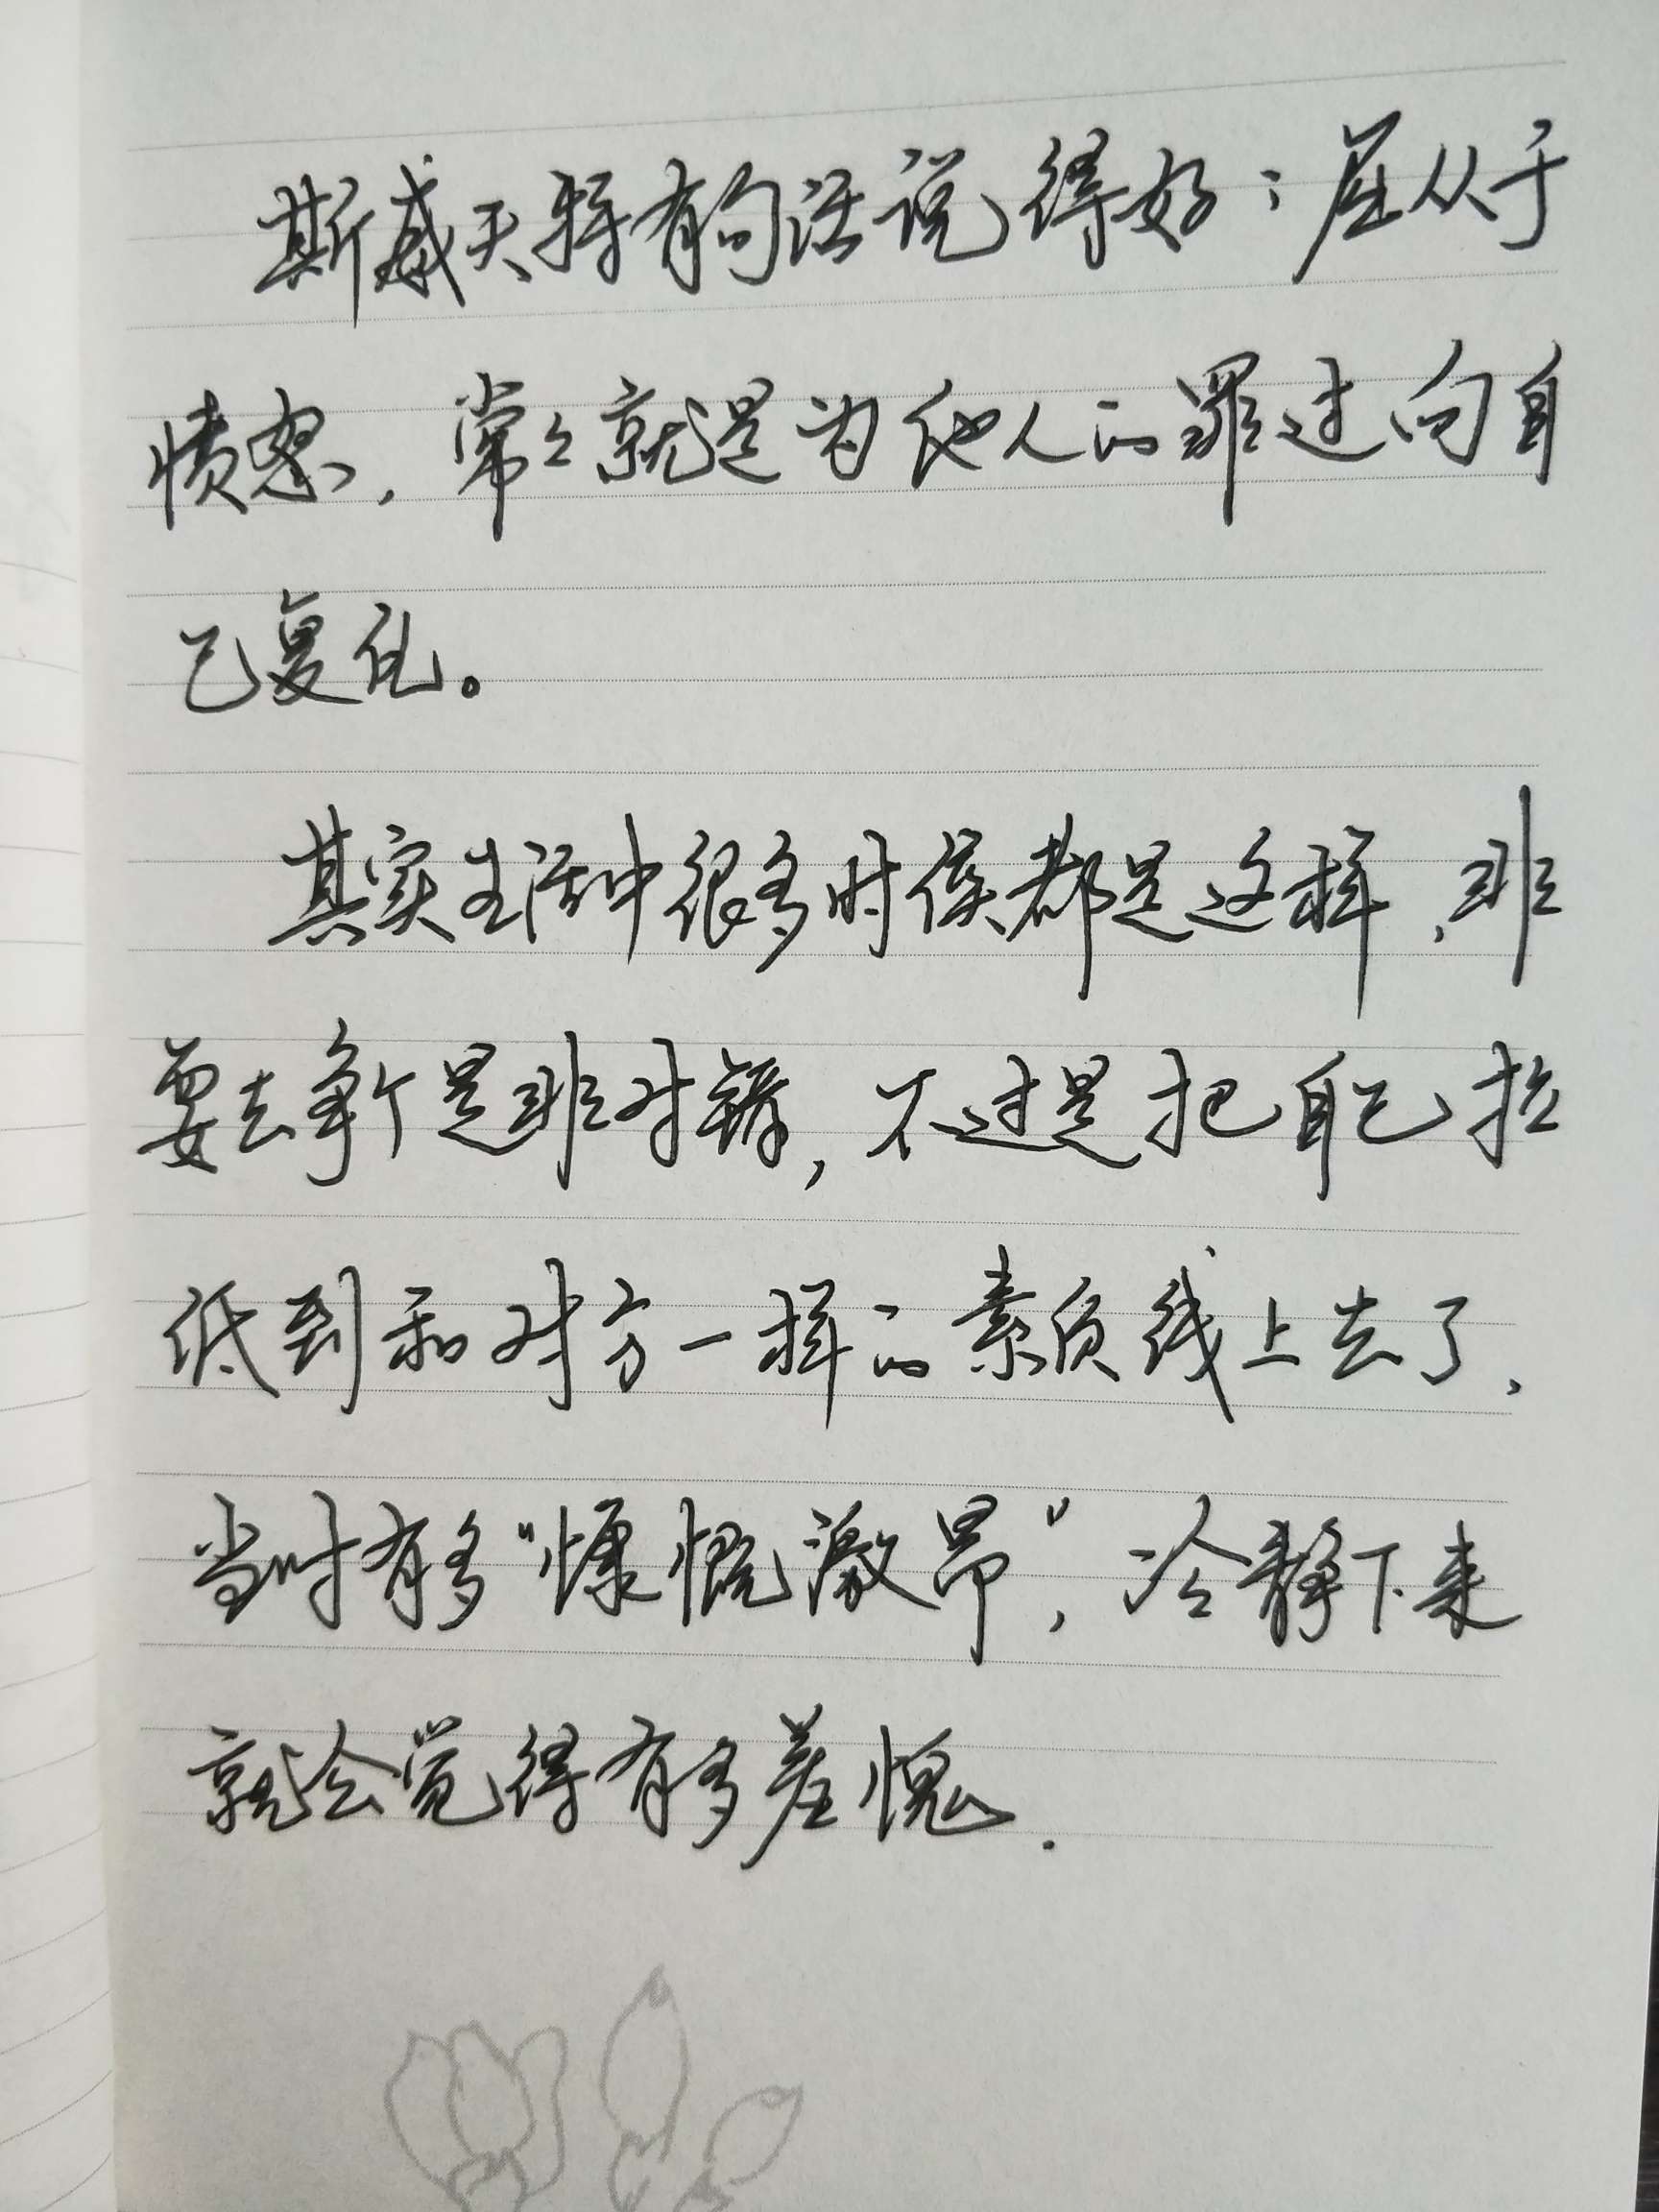 斯威夫特有句话说得好：屈从于
愤怒，常々就是为他人的罪过向自
己复仇。
其实生活中很多时候都是这样，非
要去争个是非对错，不过是把自己拉
低到和对方一样的素质线上去了，
当时有多“慷慨激昂”，冷静下来
就会觉得有多羞愧.